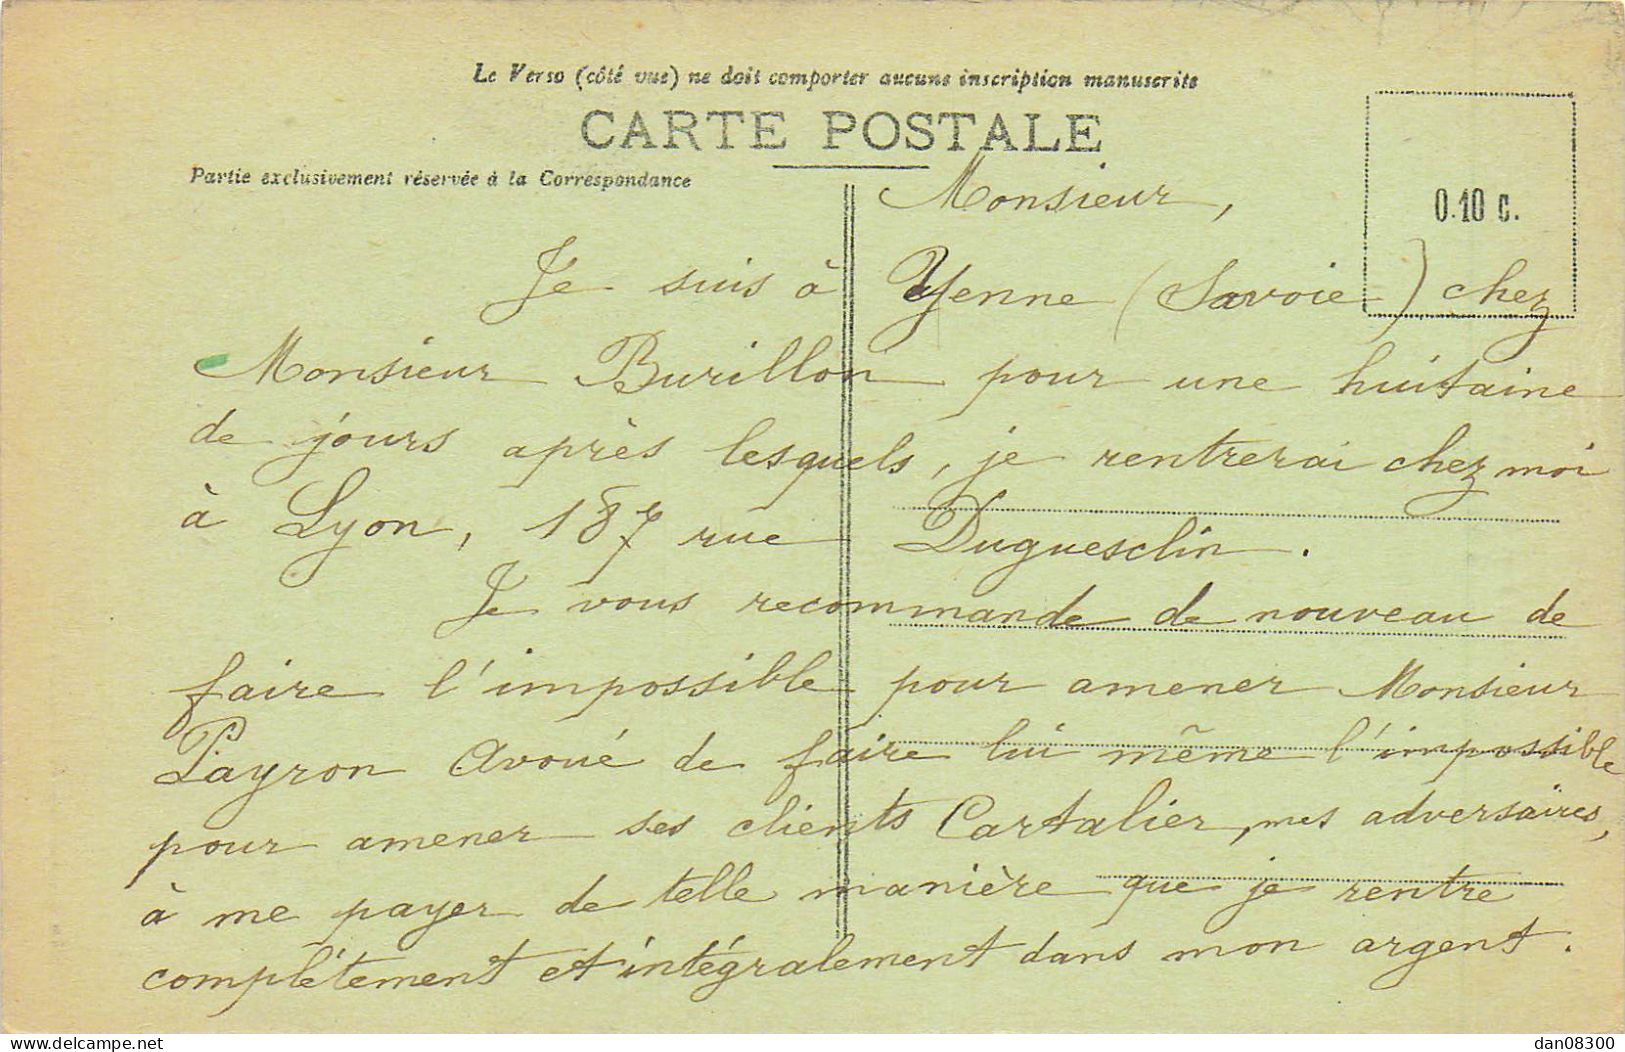 Le Verso (côté vue) ne doit comporter aucune inscription manuscrite
CARTE POSTALE
Partie exclusivement réservée à la Correspondance
0.10 c.
Monsieur,
Je suis à Yenne (Savoie) chez
Monsieur Burillon pour une huitaine
de jours après lesquels, je rentrerai chez moi
à Lyon, 187 rue Duguesclin.
Je vous recommande de nouveau de
faire l'impossible pour amener Monsieur
Payron avoué de faire lui même l'impossible
pour amener ses clients Cartalier, mes adversaires,
à me payer de telle manière que je rentre
complètement et intégralement dans mon argent.
delcampe.net
dan08300